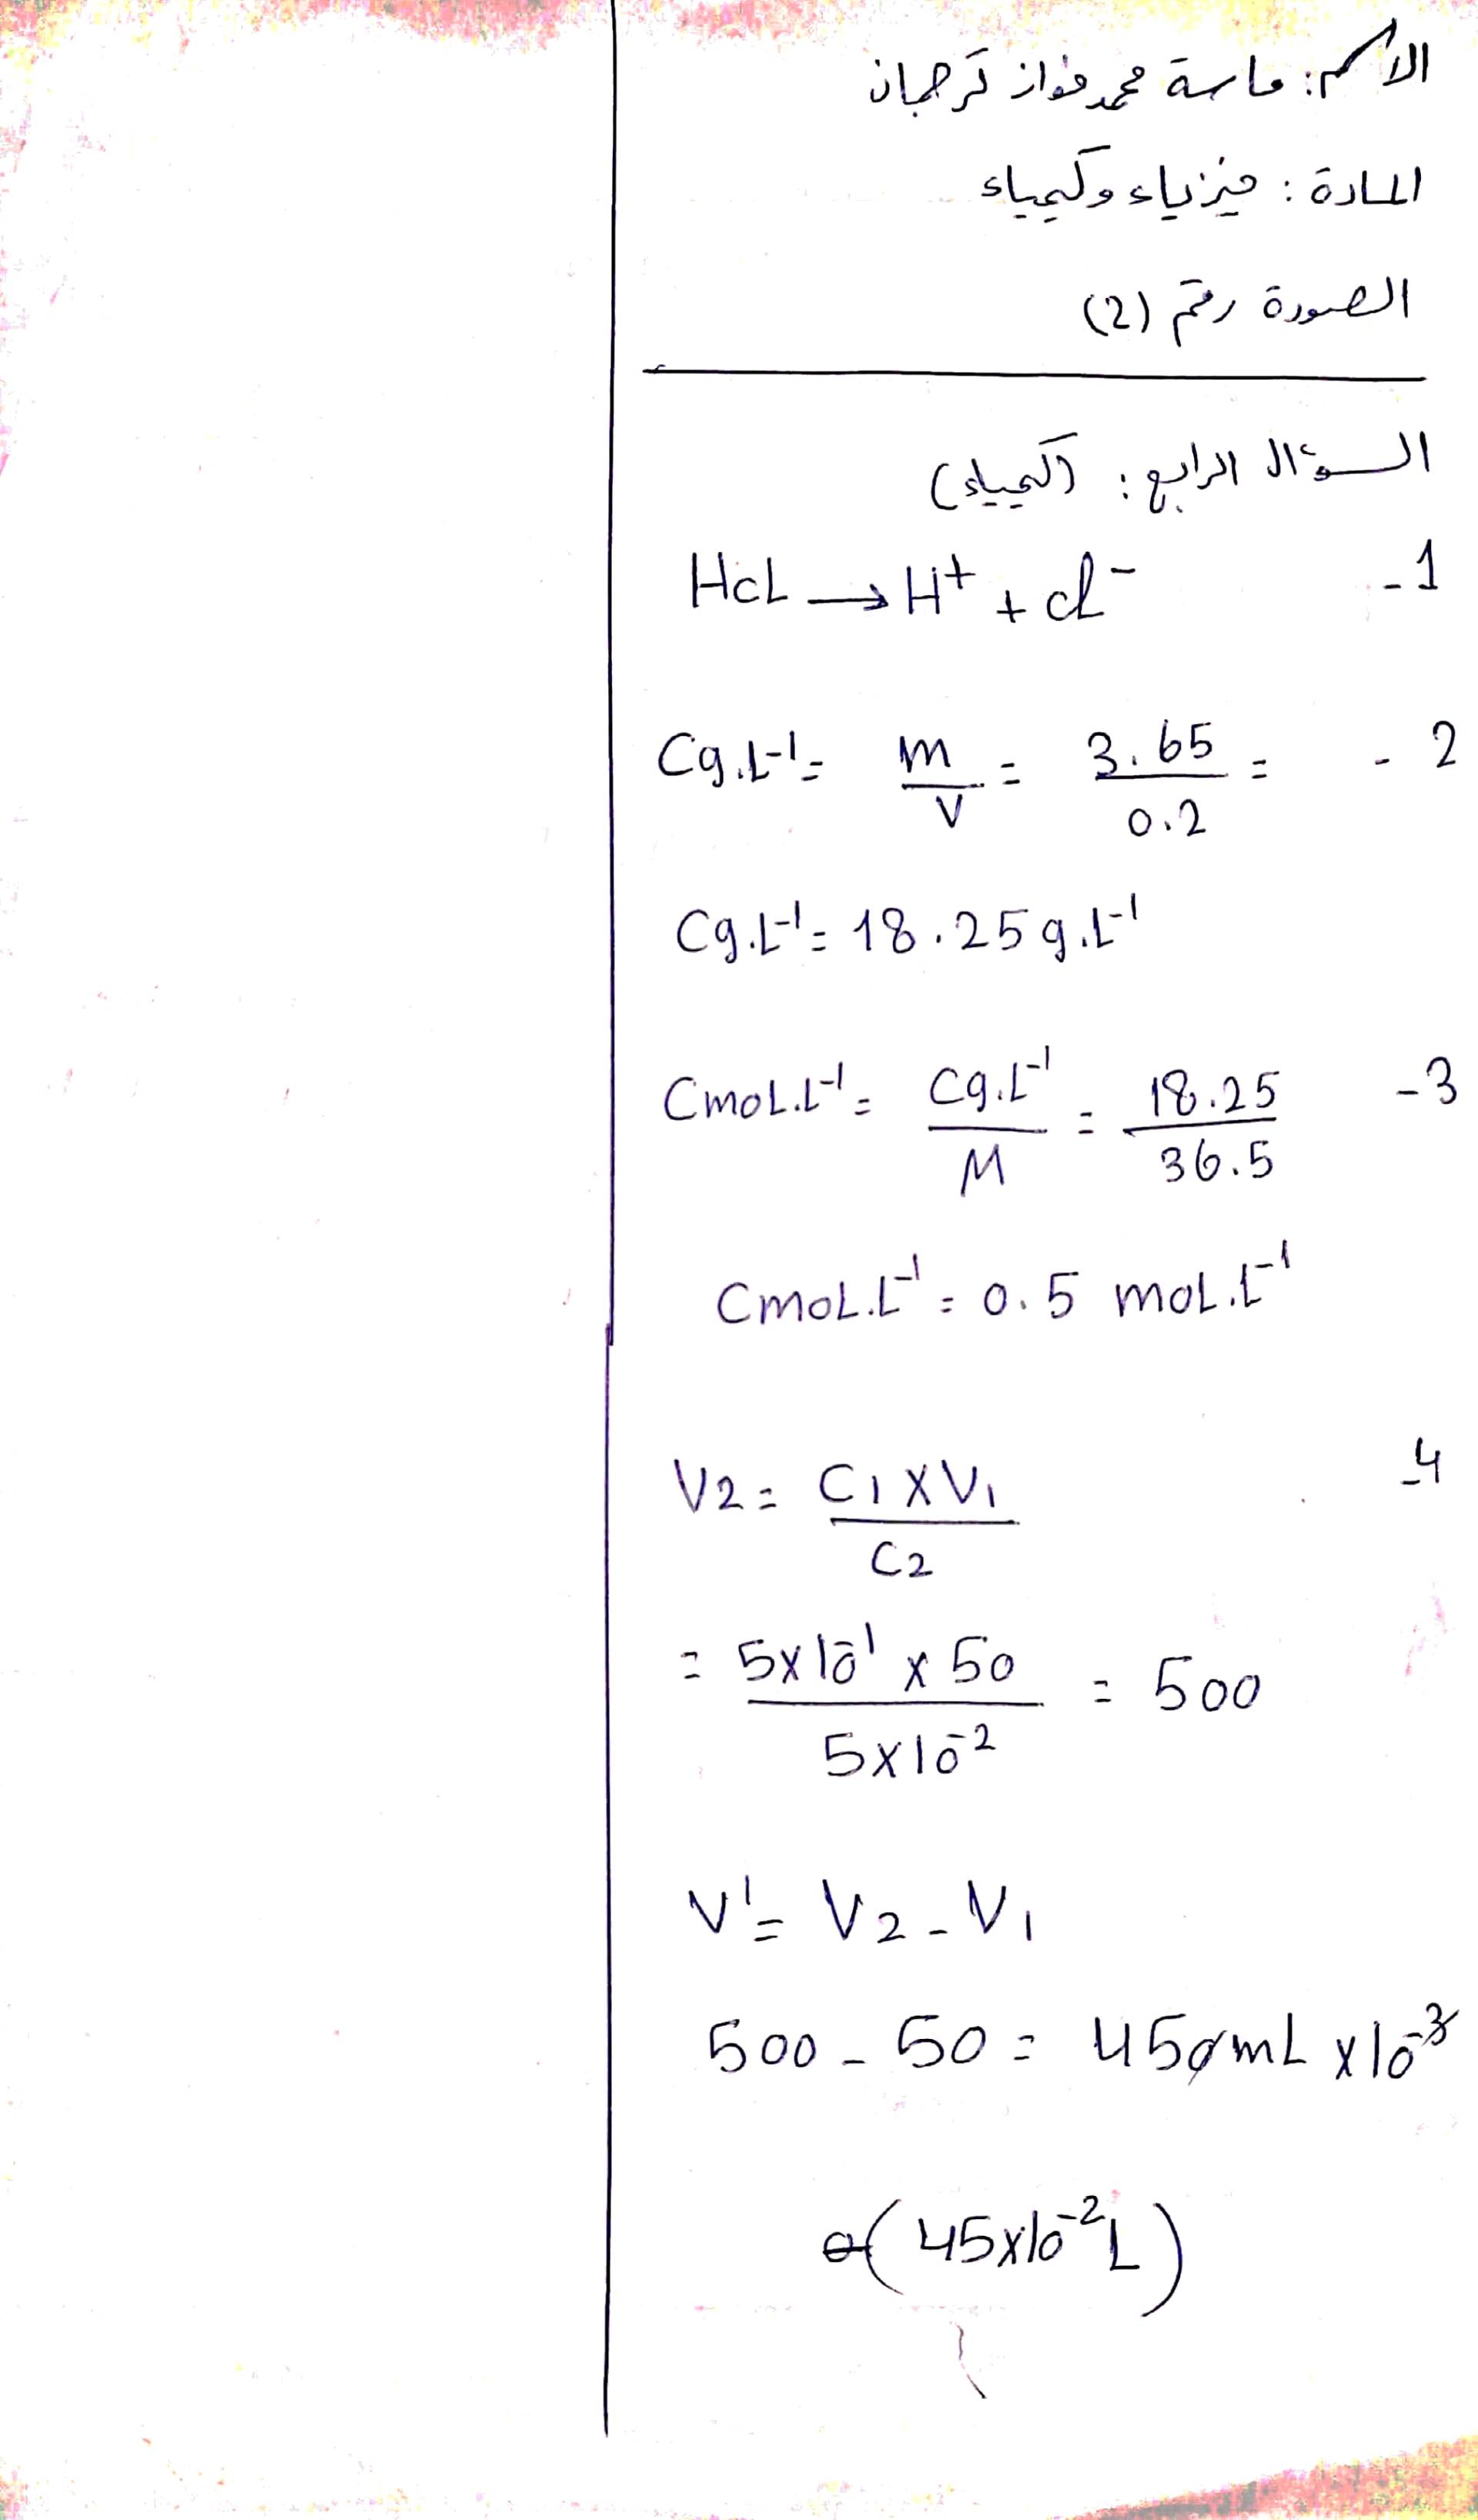 الاسم: ماسة محمد فواز ترجمان
المادة: فيزياء وكيمياء
الصورة رقم (2)
السؤال الرابع: (كيمياء)
1- HCL → H⁺ + cl⁻
2- Cg.L⁻¹ = m/V = 3.65/0.2 =
Cg.L⁻¹ = 18.25 g.L⁻¹
3- CmoL.L⁻¹ = Cg.L⁻¹/M = 18.25/36.5
CmoL.L⁻¹ = 0.5 moL.L⁻¹
4- V2 = C1 X V1/C2
= 5x10⁻¹ x 50/5x10⁻² = 500
V' = V2 - V1
500 - 50 = 450mL x10⁻³
(45x10⁻²L)